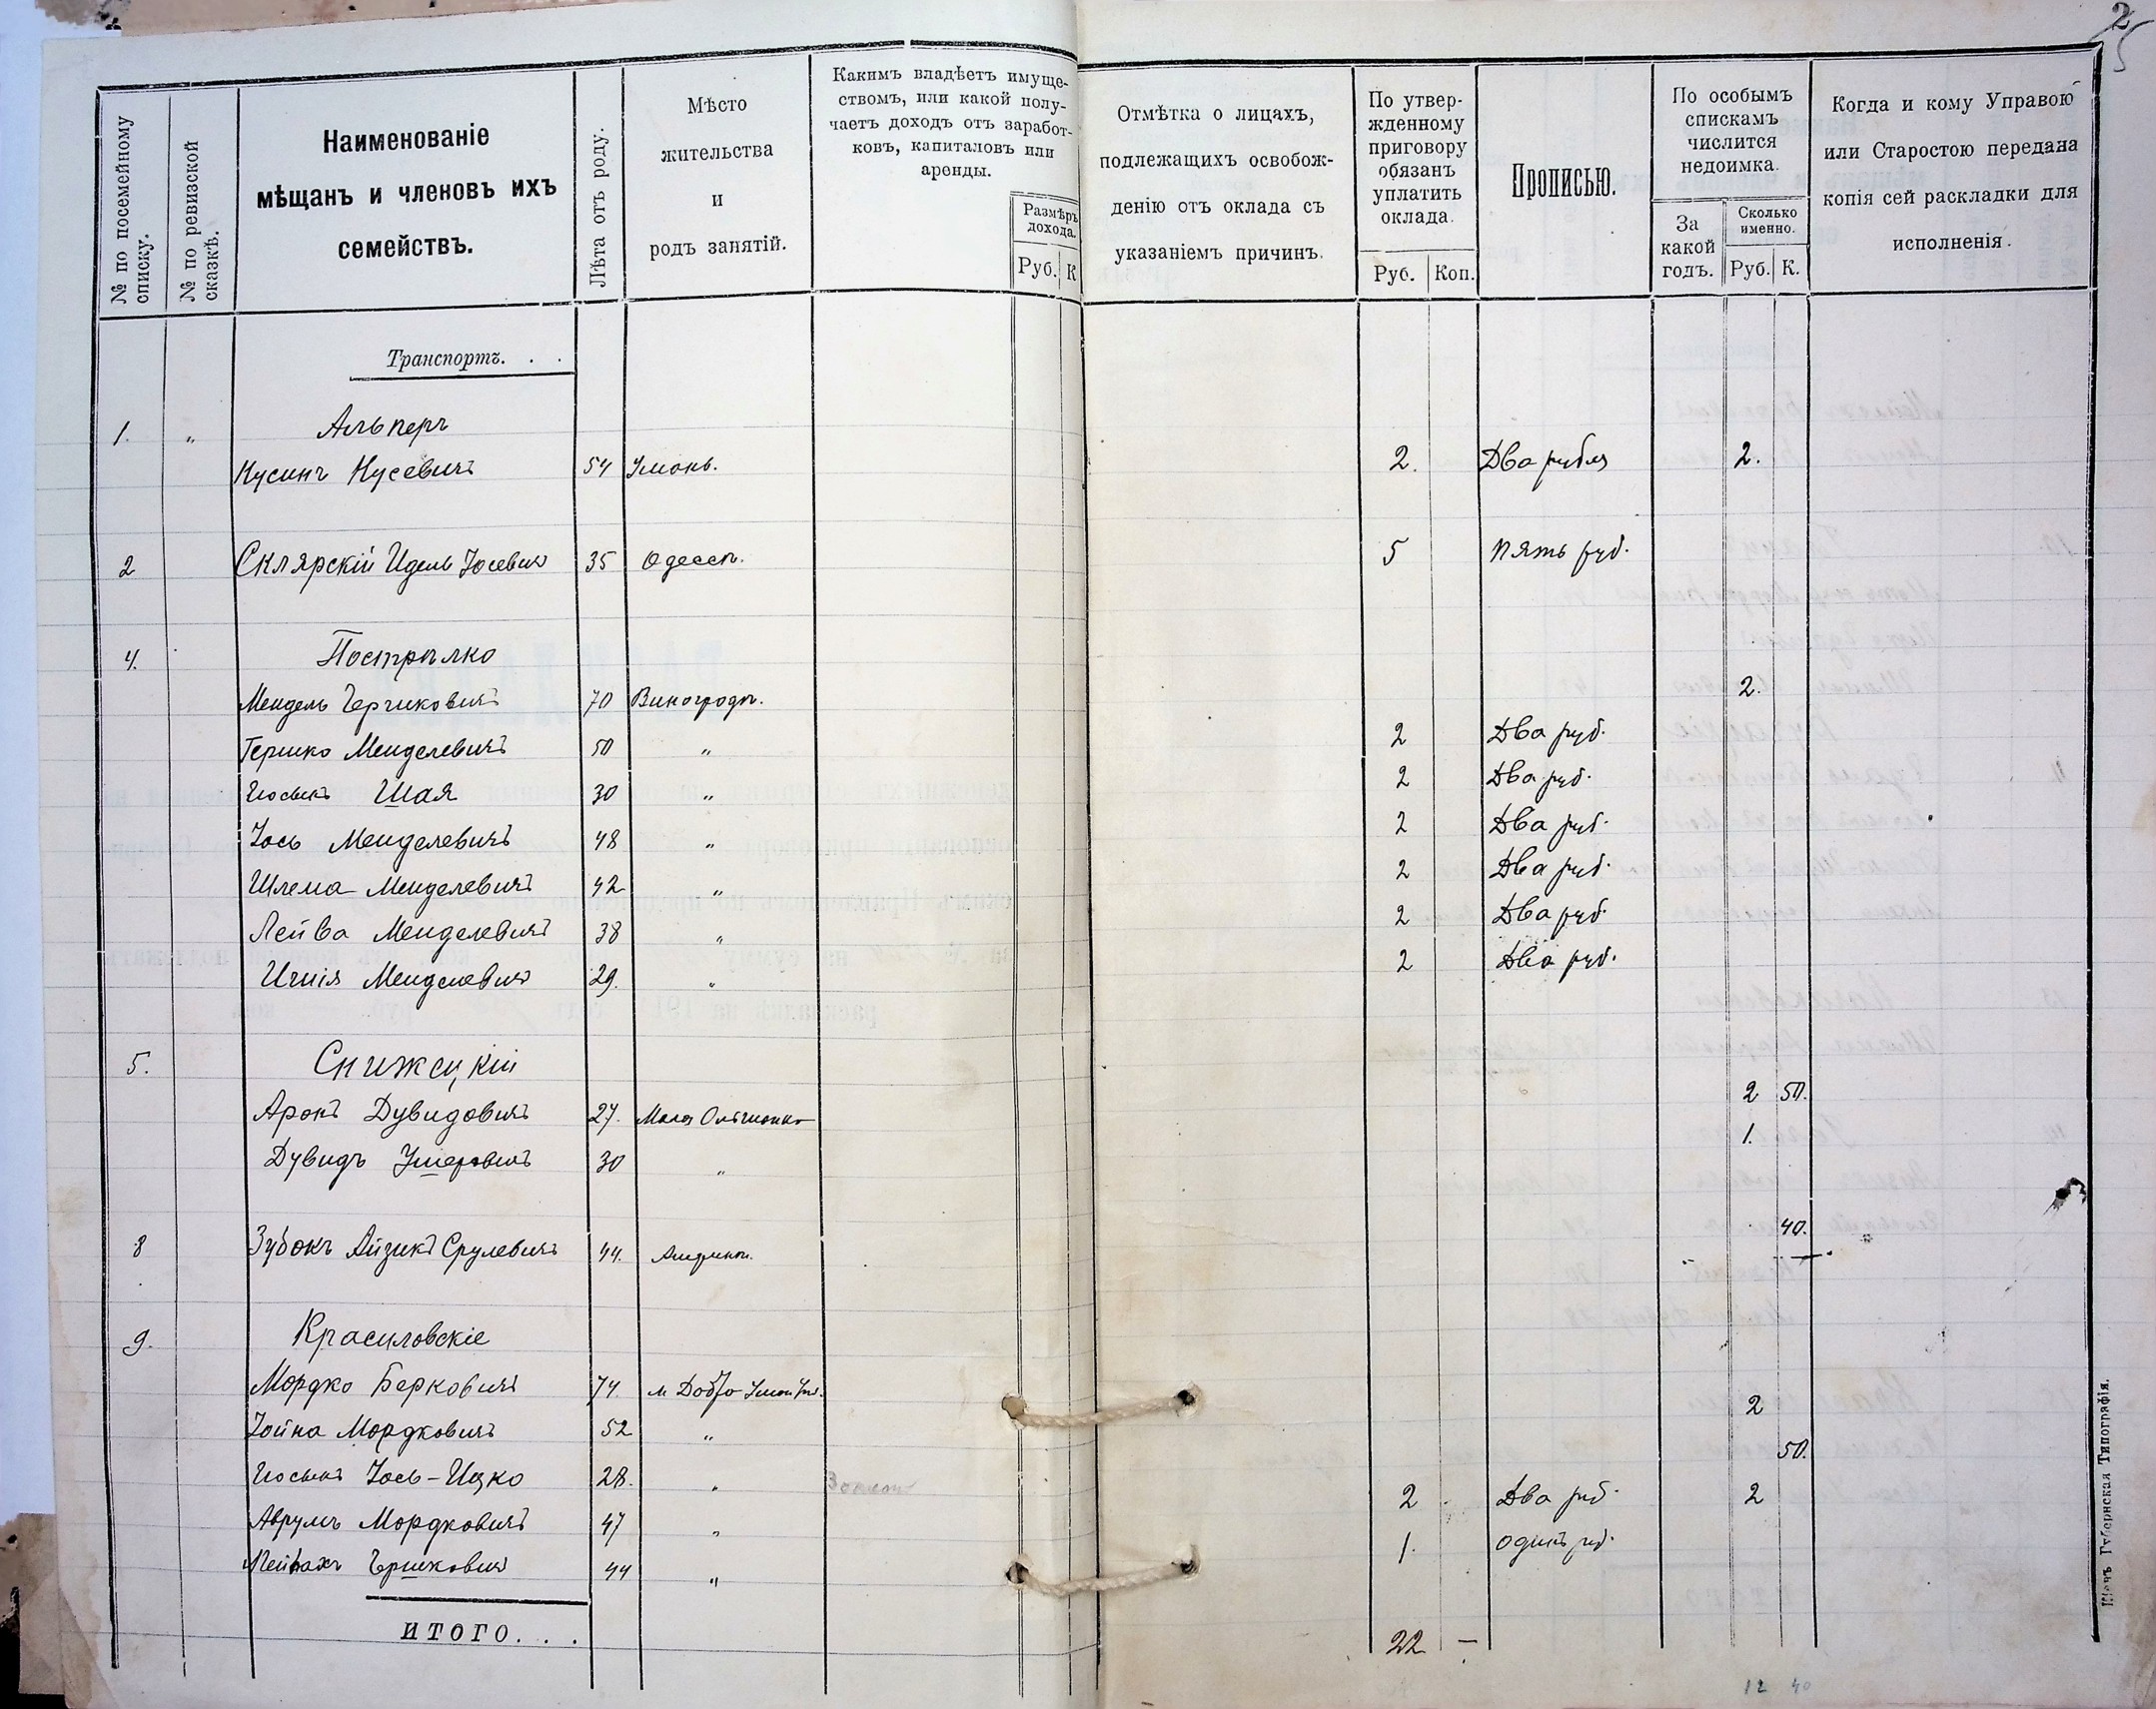 2
5
№ по посемейному списку.
№ по ревизской сказкѣ.
Наименованіе
мѣщанъ и членовъ ихъ
семействъ.
Лѣта отъ роду.
Мѣсто
жительства
и
родъ занятій.
Какимъ владѣетъ имуще-
ствомъ, или какой полу-
чаетъ доходъ отъ заработ-
ковъ, капиталовъ или
аренды.
Размѣръ
дохода.
Руб. К
Отмѣтка о лицахъ,
подлежащихъ освобож-
денію отъ оклада съ
указаніемъ причинъ.
По утвер-
жденному
приговору
обязанъ
уплатить
оклада.
Руб. Коп.
Прописью.
По особымъ
спискамъ
числится
недоимка.
За
какой
годъ.
Сколько
именно.
Руб. К.
Когда и кому Управою
или Старостою передана
копія сей раскладки для
исполненія.
Транспортъ. . .
1. „ Альперъ
Нусинъ Нусевичъ 54 Умань. 2. Два рубля 2.
2 Склярскій Идель Іосевич 35 Одесса. 5 Пять руб.
4. Пострѣлко
Мендель Гершковичъ 70 Виноградъ. 2.
Гершко Менделевичъ 50 „ 2 Два руб.
Іосыпъ Шая 30 „ 2 Два руб.
Іось Менделевичъ 48 „ 2 Два руб.
Шлема Менделевичъ 42 „ 2 Два руб.
Лейба Менделевичъ 38 „ 2 Два руб.
Менделевич 29. „ 2 Два руб.
5. Снижецкій
Аронъ Дувидовичъ 27. Мала 2 50.
Дувидъ 30 „ 1.
8 Зубокъ Айзикъ Срулевичъ 44. 40.
9. Красиловскіе
Мордко Берковичъ 74. м 2
Іойна Мордковичъ 52 „ 50.
Іось-Ицко 28. „ 2 Два руб. 2
Аврумъ Мордковичъ 47 „ 1. один руб.
Гершкович 44 „
ИТОГО. . . 22 —
12 40
Кіевъ Губернская Типографія.